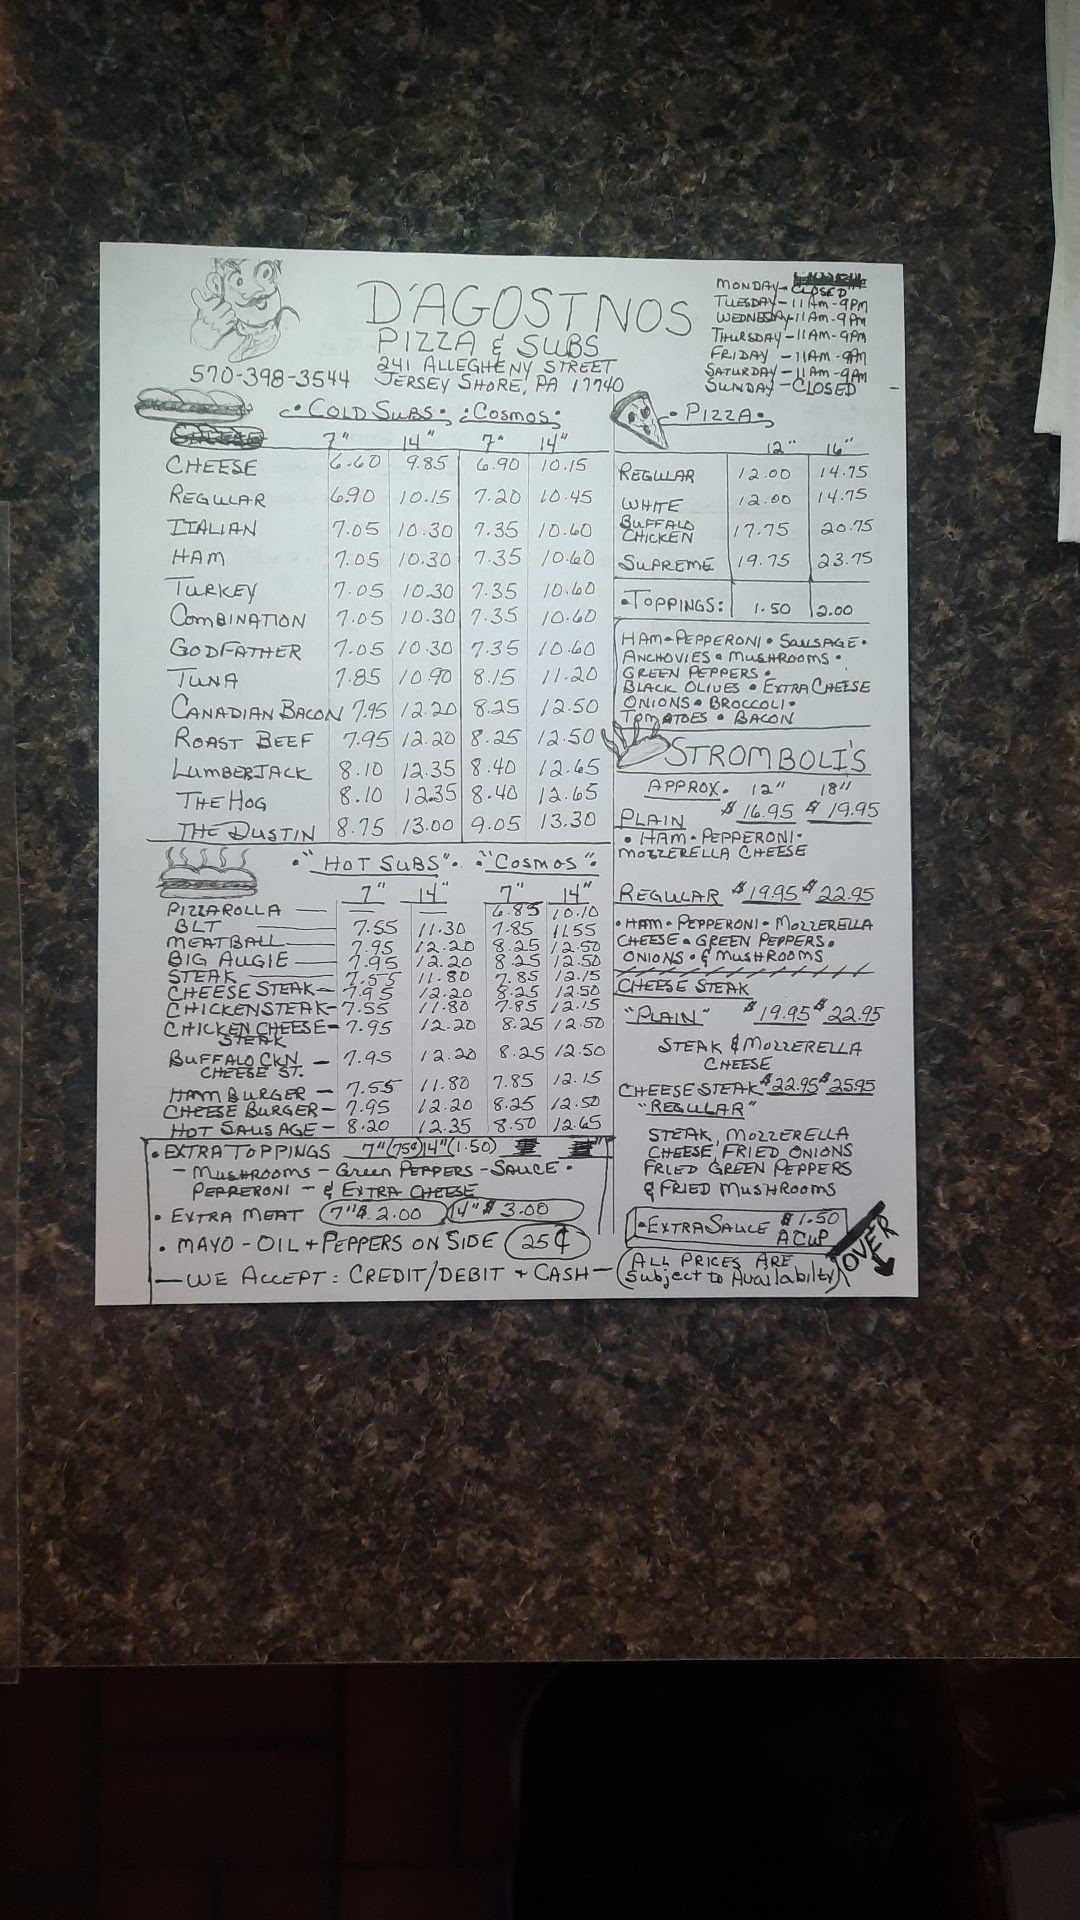 D'AGOSTNOS
PIZZA & SUBS
241 ALLEGHENY STREET
570-398-3544 JERSEY SHORE, PA 17740
MONDAY - CLOSED
TUESDAY - 11AM - 9PM
WEDNESDAY - 11AM - 9PM
THURSDAY - 11AM - 9PM
FRIDAY - 11AM - 9PM
SATURDAY - 11AM - 9PM
SUNDAY - CLOSED
• COLD SUBS • : COSMOS :
7" 14" 7" 14"
CHEESE 6.60 9.85 6.90 10.15
REGULAR 6.90 10.15 7.20 10.45
ITALIAN 7.05 10.30 7.35 10.60
HAM 7.05 10.30 7.35 10.60
TURKEY 7.05 10.30 7.35 10.60
COMBINATION 7.05 10.30 7.35 10.60
GODFATHER 7.05 10.30 7.35 10.60
TUNA 7.85 10.90 8.15 11.20
CANADIAN BACON 7.95 12.20 8.25 12.50
ROAST BEEF 7.95 12.20 8.25 12.50
LUMBERJACK 8.10 12.35 8.40 12.65
THE HOG 8.10 12.35 8.40 12.65
THE DUSTIN 8.75 13.00 9.05 13.30
• "HOT SUBS" • • "COSMOS" •
7" 14" 7" 14"
PIZZAROLLA — — — 6.85 10.10
BLT 7.55 11.30 7.85 11.55
MEATBALL — 7.95 12.20 8.25 12.50
BIG AUGIE — 7.95 12.20 8.25 12.50
STEAK — 7.55 11.80 7.85 12.15
CHEESE STEAK — 7.95 12.20 8.25 12.50
CHICKEN STEAK — 7.55 11.80 7.85 12.15
CHICKEN CHEESE — 7.95 12.20 8.25 12.50
STEAK
BUFFALO CKN — 7.95 12.20 8.25 12.50
CHEESE ST.
HAMBURGER — 7.55 11.80 7.85 12.15
CHEESE BURGER — 7.95 12.20 8.25 12.50
HOT SAUSAGE — 8.20 12.35 8.50 12.65
• EXTRA TOPPINGS 7" (75¢) 14" (1.50)
— MUSHROOMS — GREEN PEPPERS — SAUCE •
PEPPERONI — & EXTRA CHEESE
• EXTRA MEAT 7" $2.00 14" $3.00
• MAYO - OIL + PEPPERS ON SIDE 25¢
— WE ACCEPT : CREDIT/DEBIT + CASH —
• PIZZA •
12" 16"
REGULAR 12.00 14.75
WHITE 12.00 14.75
BUFFALO
CHICKEN 17.75 20.75
SUPREME 19.75 23.75
• TOPPINGS: 1.50 2.00
HAM • PEPPERONI • SAUSAGE •
ANCHOVIES • MUSHROOMS •
GREEN PEPPERS •
BLACK OLIVES • EXTRA CHEESE
ONIONS • BROCCOLI •
TOMATOES • BACON
STROMBOLI'S
APPROX. 12" 18"
PLAIN $16.95 $19.95
• HAM • PEPPERONI •
MOZZERELLA CHEESE
REGULAR $19.95 $22.95
• HAM • PEPPERONI • MOZZERELLA
CHEESE • GREEN PEPPERS •
ONIONS • & MUSHROOMS
CHEESE STEAK
"PLAIN" $19.95 $22.95
STEAK & MOZZERELLA
CHEESE
CHEESE STEAK $22.95 $25.95
"REGULAR"
STEAK, MOZZERELLA
CHEESE, FRIED ONIONS
FRIED GREEN PEPPERS
& FRIED MUSHROOMS
• EXTRA SAUCE $1.50
A CUP
ALL PRICES ARE
Subject to Availabilty
OVER